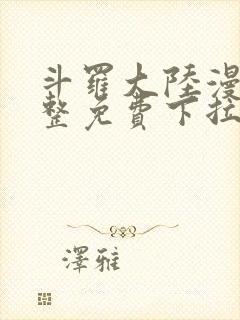 斗羅大陸漫
整免費下拉
澤雅